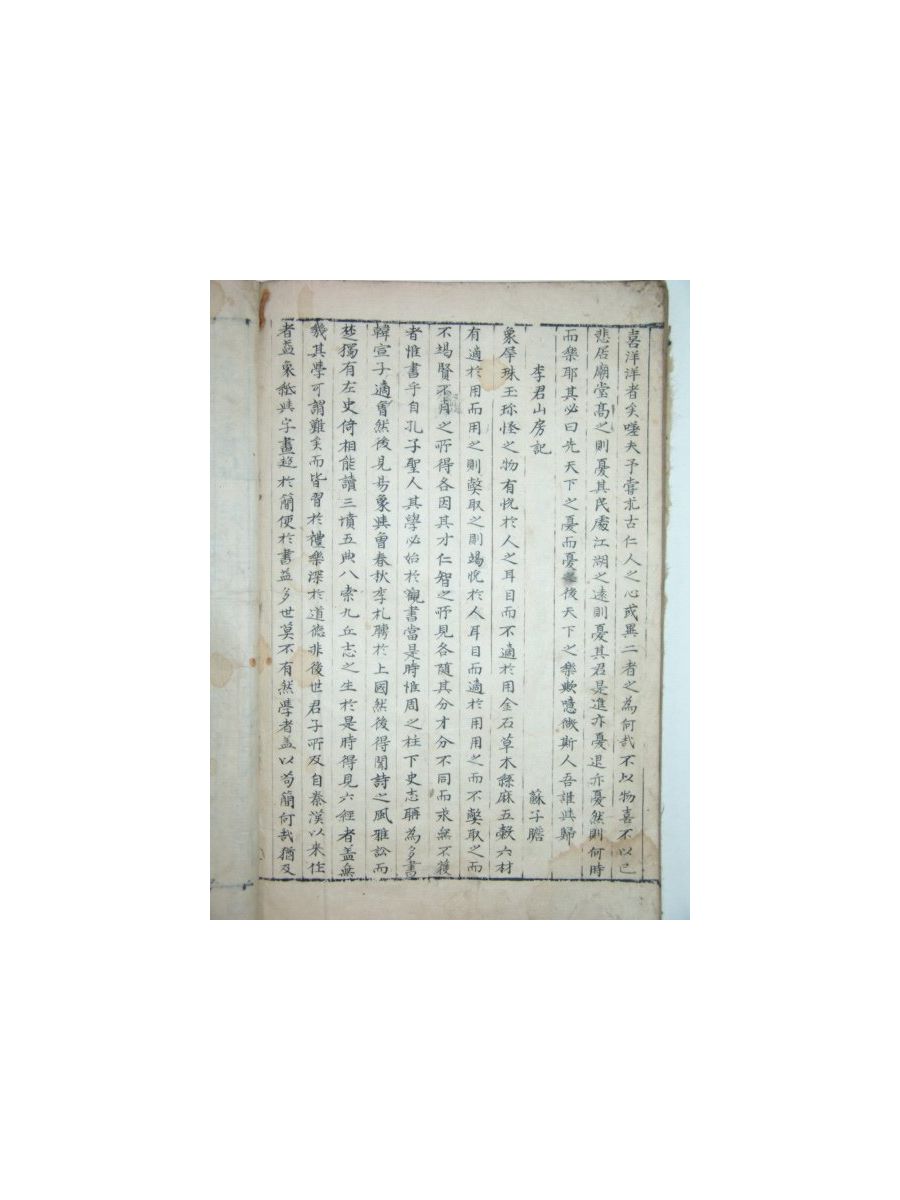 喜洋洋者矣嗟夫予嘗求古仁人之心或異二者之為何哉不以物喜不以己
悲居廟堂高之則憂其民處江湖之遠則憂其君是進亦憂退亦憂然則何時
而樂耶其必曰先天下之憂而憂後天下之樂歟噫微斯人吾誰與歸
李君山房記 蘇子瞻
象犀珠玉珎怪之物有恱於人之耳目而不適於用金石草木絲麻五糓六材
有適於用而用之則獘取之則竭恱於人耳目而適於用用之而不獘取之而
不竭賢不肖之所得各因其才仁智之所見各随其分才分不同而求無不獲
者惟書乎自孔子聖人其學必始於觀書當是時惟周之柱下史志聃為多書
韓宣子適魯然後見易象與魯春秋季札聘於上國然後得聞詩之風雅訟而
楚獨有左史倚相能讀三墳五典八索九丘志之生於是時得見六經者盖無
幾其學可謂難矣而皆習於禮樂深於道德非後世君子所及自秦漢以來作
者益衆紙與字畫趍於簡便於書益多世莫不有然學者盖以苟簡何哉猶及